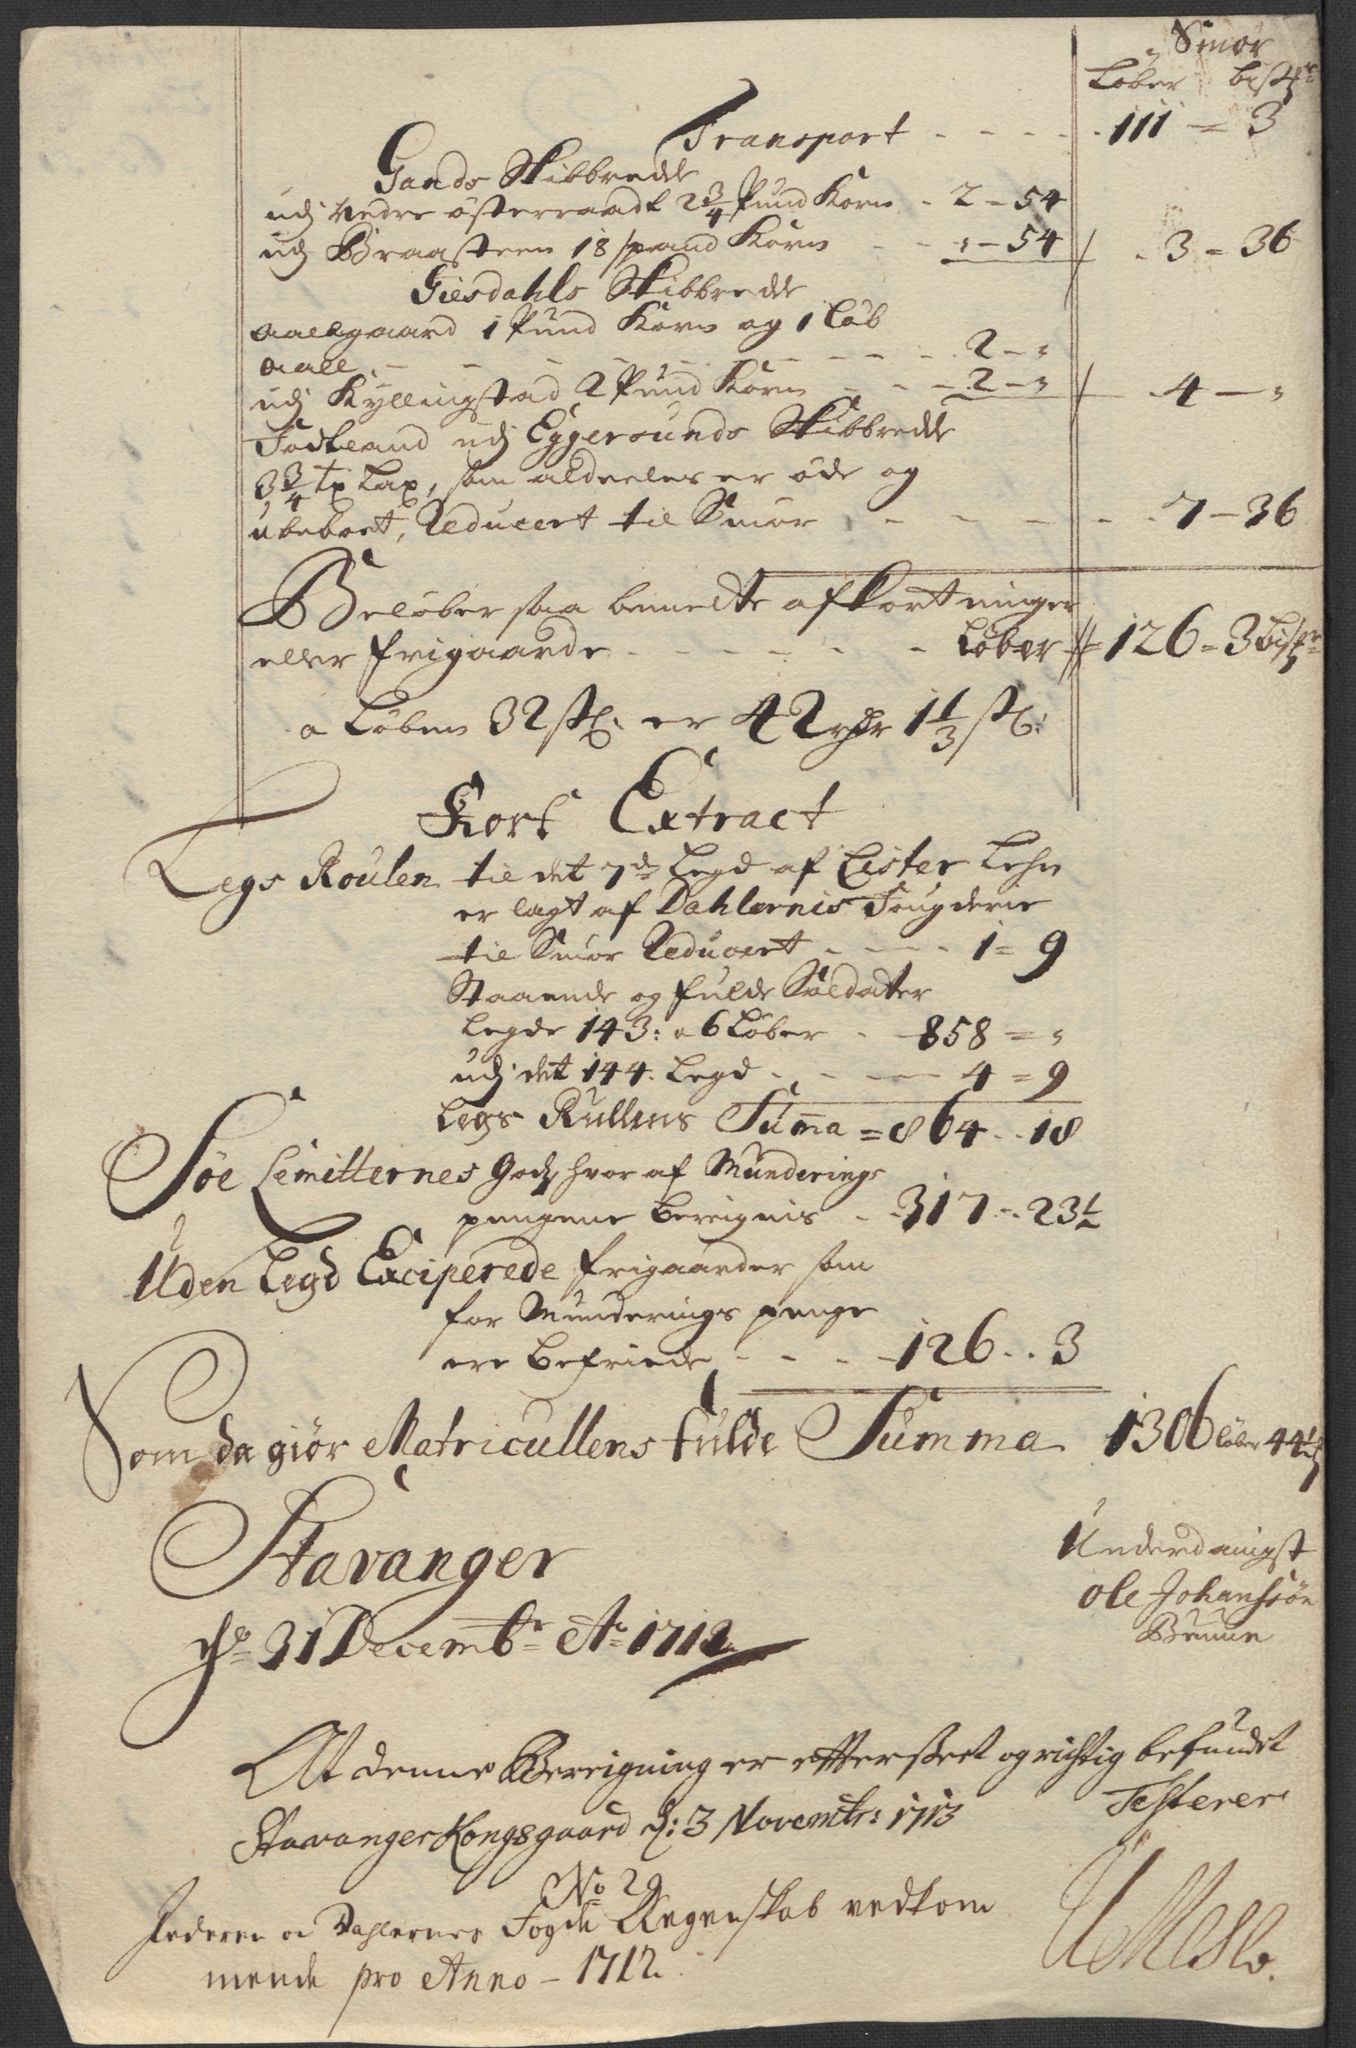 Smør
Løber bismk
Transport - - - - - 111 - 3
Gands Skibbrede
udj Nedre österraadt 2 3/4 Pund Korn - 2 - 54
udj Braasteen 18 spand Korn - - " - 54 / 3 - 36
Giesdahls Skibbrede
Aalgaard 1 Pund Korn og 1 Løb
aall - - - - - - - - 2 - "
udj Kyllingstad 2 Pund Korn - - - 2 - " / 4 - "
udj Eggersunds Skibbrede
3 3/4 tp Lax, som aldeeles er øde og
ubeboet, Reducert til Smør - - - - - 7 - 36
Beløber saa bemelte afkortninger
eller frigaarde - - - - - - Løber # 126 - 3
a Løben 32 sk. er 42 rdr 1 1/3 sk.
Kort Extract
Legs Roulen til det 7de Legd af Lister Lehn
er lagt af Dahlernis Fougderie
til Smør Reducert - - - - 1 = 9
Staaende og fulde Soldater
Legde 143: a 6 Løber - - 858 = "
udj det 144. Legd - - - - 4 = 9
Legs Rullens Summa = 864 . . 18
Søe Limitternes Gods, hvor af Munderings
pengene bereignis - - 317 - 23 1/2
Uden Legd Exciperede frigaarder som
for Munderings penge
ere befriede - - - - 126 . . 3
Som da giør Matricullens fulde Summa 1306 Løber 44 1/2
Stavanger
dend 31 Decembr Ao 1712
Underdanigst
Ole Johansøn
Bruun
At denne Bereigning er efterseet og rigtig befundet
Testerer
Stavanger Kongsgaard d: 3 Novembr: 1713
No 29
Jederen oc Dahlernes Fogde Regenskab vedkom
mende pro Anno - 1712